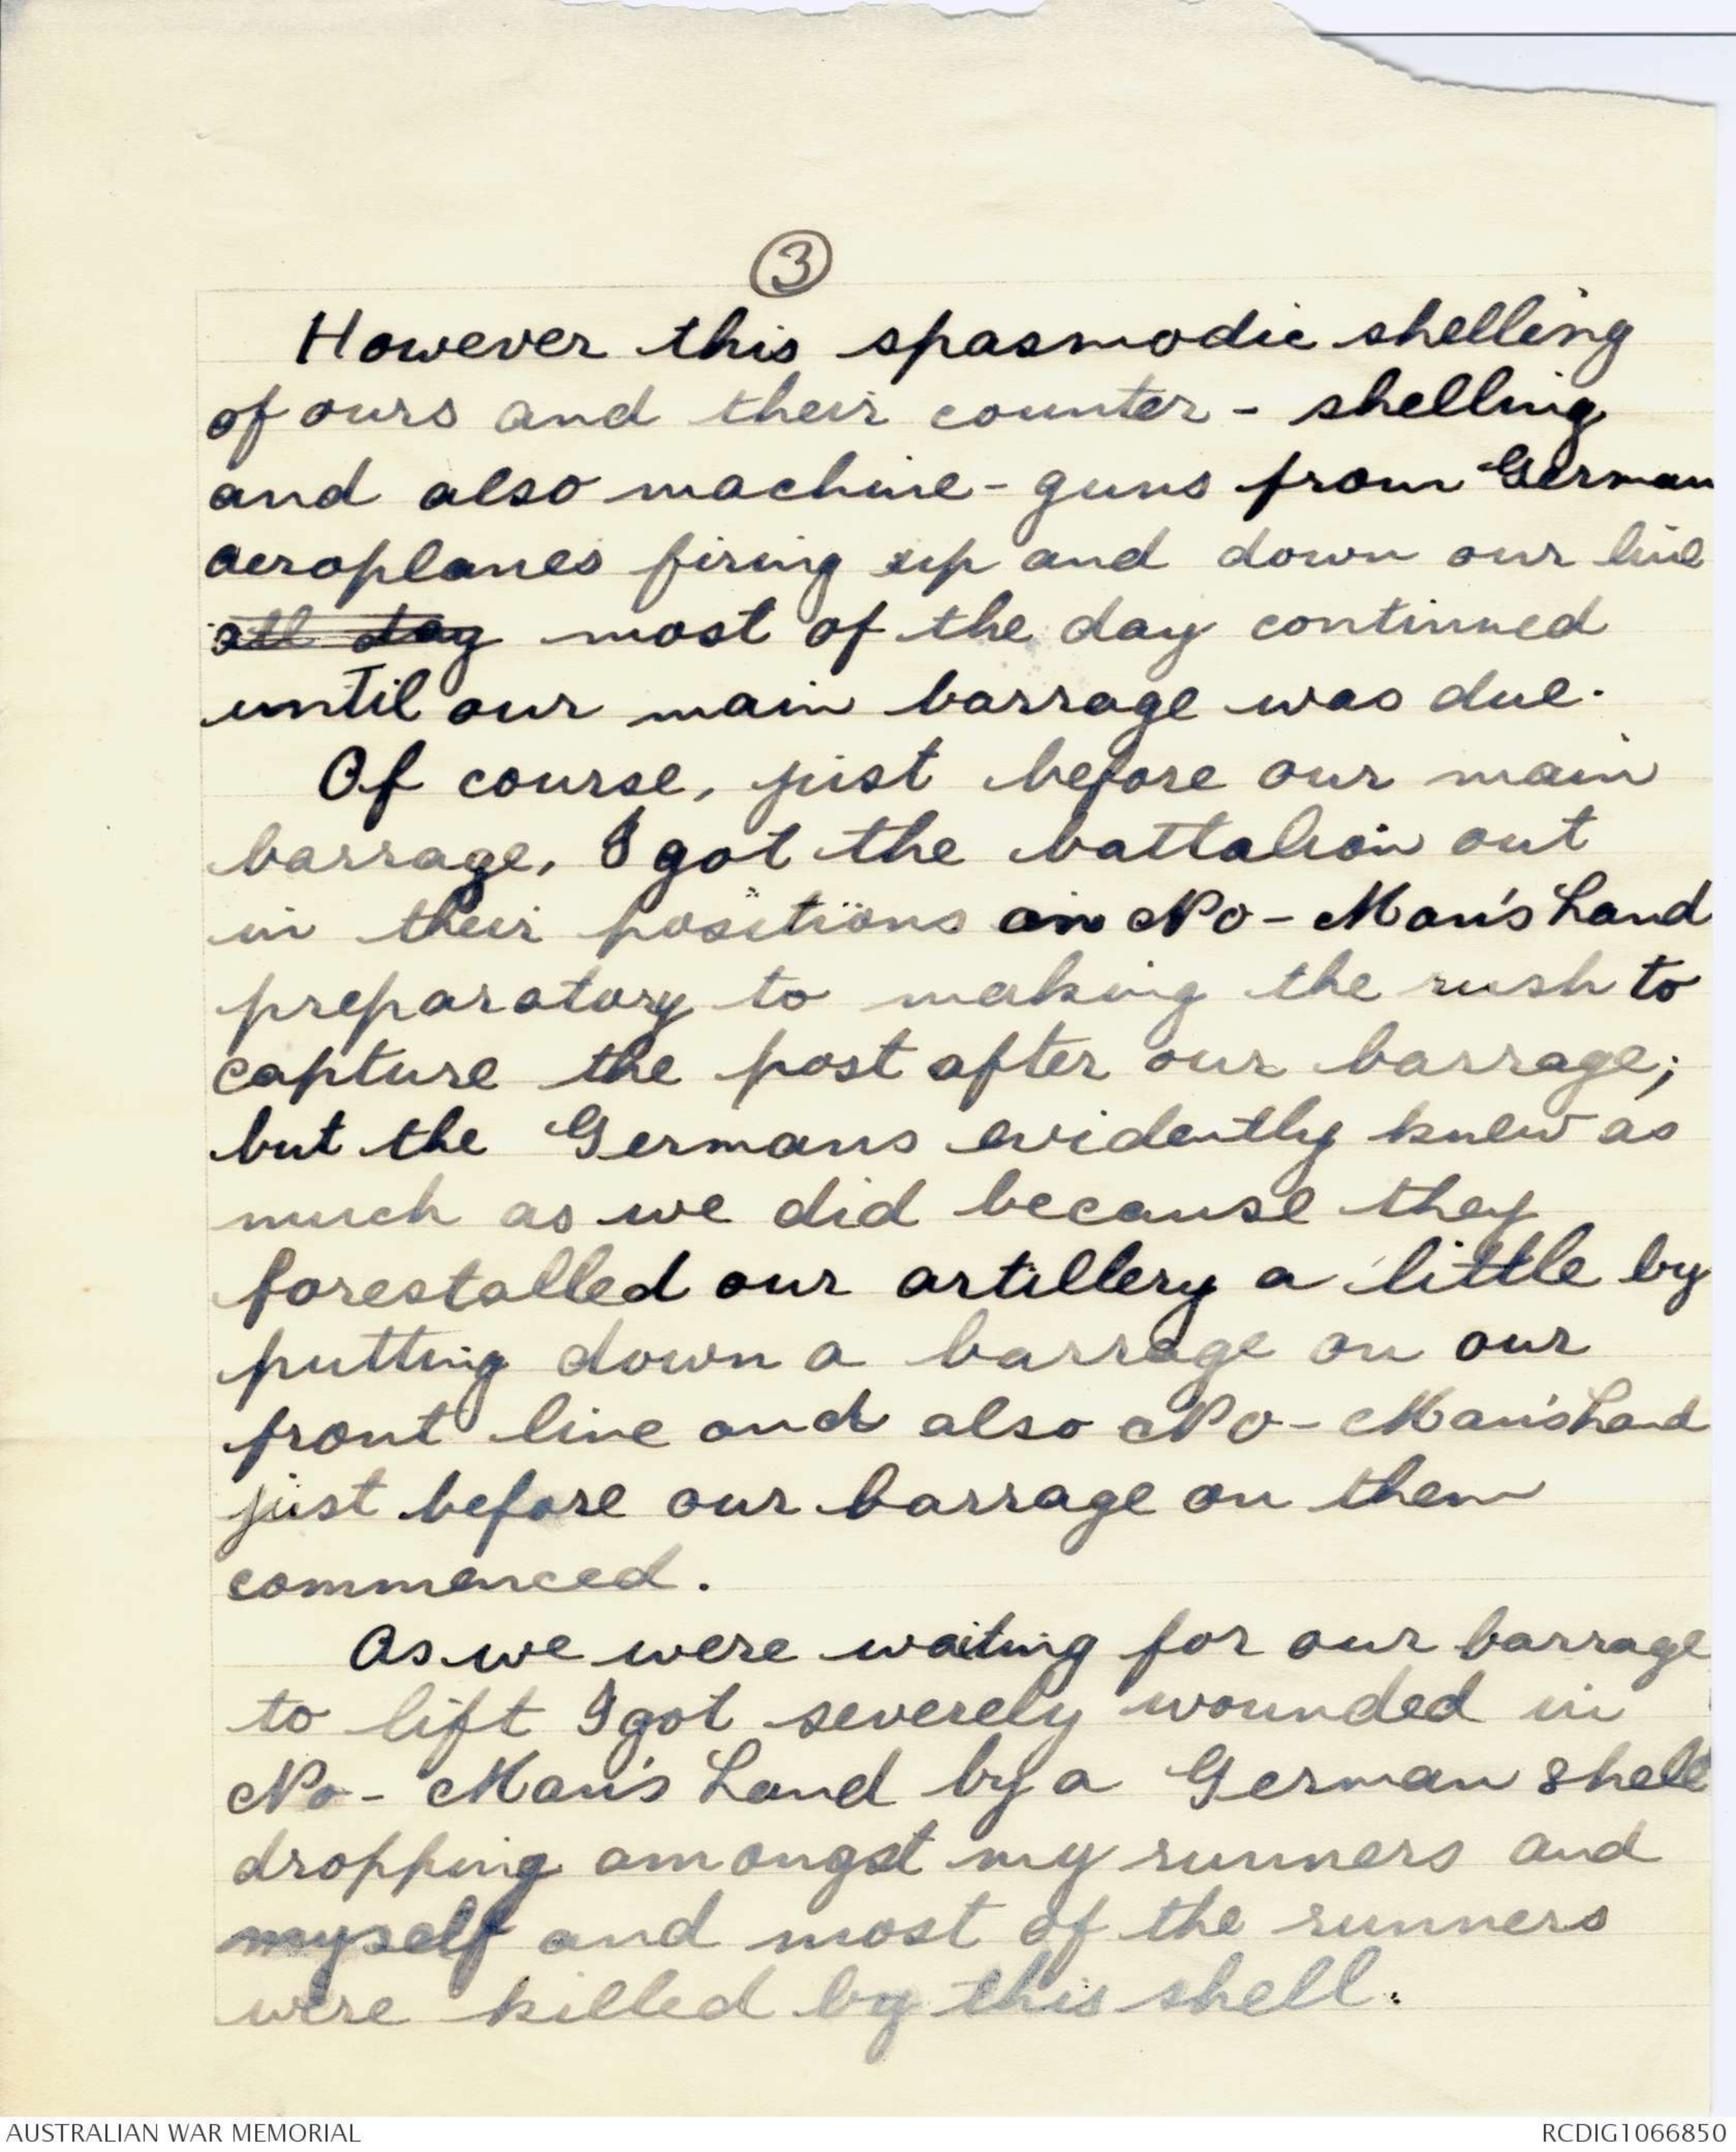 3
However this spasmodic shelling
of ours and their counter-shelling
and also machine-guns from German
aeroplanes firing up and down our line
all day most of the day continued
until our main barrage was due.
Of course, just before our main
barrage, I got the battalion out
in their positions in No-Man's Land
preparatory to making the rush to
capture the post after our barrage;
but the Germans evidently knew as
much as we did because they
forestalled our artillery a little by
putting down a barrage on our
front line and also No-Man's Land
just before our barrage on them
commenced.
As we were waiting for our barrage
to lift I got severely wounded in
No-Man's Land by a German shell
dropping amongst my runners and
myself and most of the runners
were killed by this shell.
AUSTRALIAN WAR MEMORIAL
RCDIG1066850